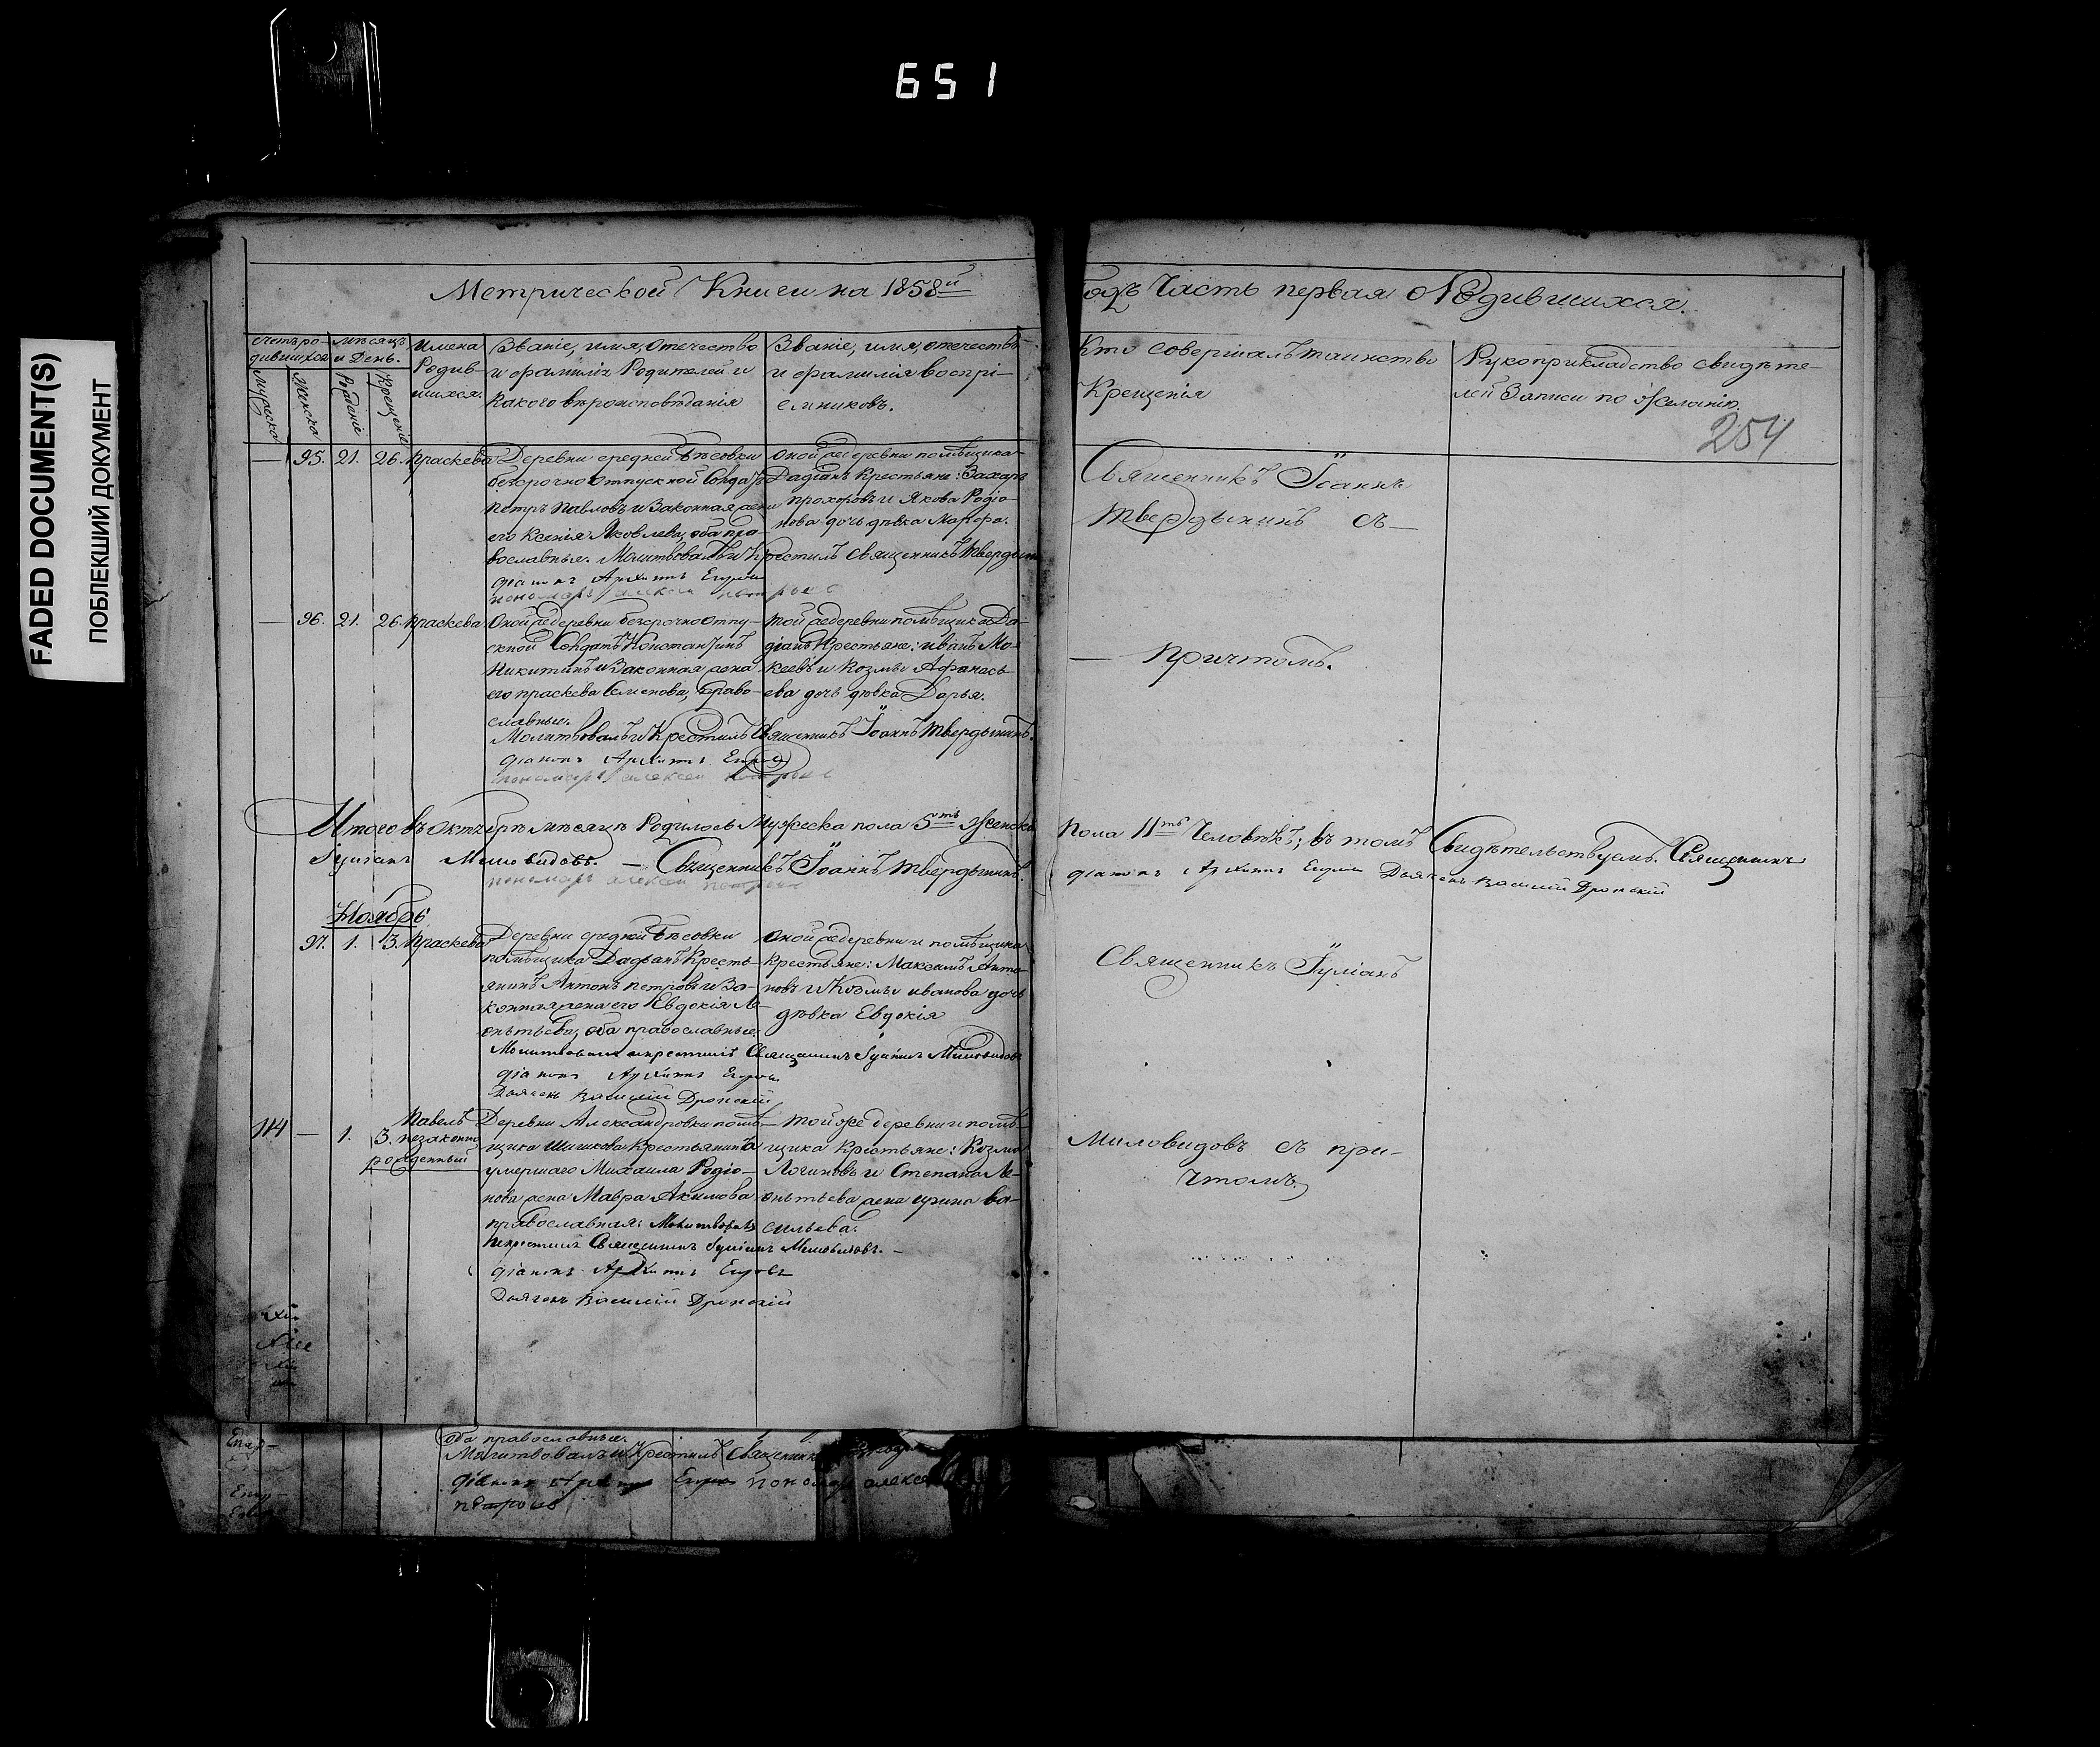 651
FADED DOCUMENT(S)
ПОБЛЕКШИЙ ДОКУМЕНТ
Метрической Книги на 1858й
годъ Часть первая О Родившихся.
Счетъ ро-
дившихся
Мужеска
Женска
Мѣсяцъ
и День.
Рожденіе
Крещеніе
Имена
Родив-
шихся.
Званіе, имя, отечество
и фамилія Родителей и
какого вѣроисповѣданія
Званіе, имя, отечество
и фамилія воспрі-
емниковъ.
Кто совершалъ таинство
Крещенія
Рукоприкладство свидѣте-
лей Записи по Желанію.
254
— 95. 21. 26. Праскева
Деревни средней
безсрочно отпускной Солдатъ
Петръ Павловъ и Законная жена
его Ксенія Яковлева, оба пра-
вославные. Молитвовалъ и Крестилъ Священникъ
діаконъ Архипъ
пономарь алексей
оной же деревни помѣщика
Дадіанъ Крестьяне: Захаръ
Прохоровъ и Якова Родіо-
нова дочь дѣвка Марфа.
Священникъ Іоаннъ
Твердынинъ съ—
— 96. 21. 26. Праскева
Оной же деревни безсрочно отпу-
скной Солдатъ
Никитинъ и Законная жена
его Праскева Семенова, право-
славные.
Молитвовалъ и Крестилъ Священникъ Іоаннъ Твердынинъ.
діаконъ Архипъ
пономарь алексей
той же деревни помѣщика Да-
діанъ Крестьяне: иванъ Мо-
кеевъ и Козмы Афанась-
ева дочь дѣвка Дарья.
— Причтомъ.
Итого въ октябрѣ мѣсяцѣ Родилось Мужеска пола 5ть Женска
Пола 11ть Человѣкъ; въ томъ Свидѣтельствуемъ. Священникъ
Миловидовъ. — Священникъ Іоаннъ Твердынинъ.
діаконъ Архипъ Дьячекъ Василій
пономарь алексей
Ноябрь
97. 1. 3. Праскева
Деревни средней
помѣщика Дадьянъ Кресть-
янинъ Антонъ Петровъ и За-
конная жена его Евдокія Ле-
онтьева, оба православные.
Молитвовалъ и крестилъ Священникъ Миловидовъ
діаконъ Архипъ
Дьячекъ Василій
оной же деревни и помѣщика
Крестьяне: Максимъ Анто-
новъ и Козмы иванова дочь
дѣвка Евдокія
Священникъ Іуліанъ
114 — 1. 3.
Павелъ
незаконно
рожденный
Деревни Александровки помѣ-
щика Шишкова Крестьянина
умершаго Михаила Родіо-
нова жена Мавра Акимова
православная: Молитвовалъ
и крестилъ Священникъ Миловидовъ. —
діаконъ Архипъ
Дьячекъ Василій
той же деревни и помѣ-
щика Крестьяне: Козма
Логиновъ и Степана Ле-
онтьева жена ирина ва-
сильева.
Миловидовъ съ при-
чтомъ.
оба православные.
Молитвовалъ и Крестилъ Священникъ
діаконъ пономарь алексей